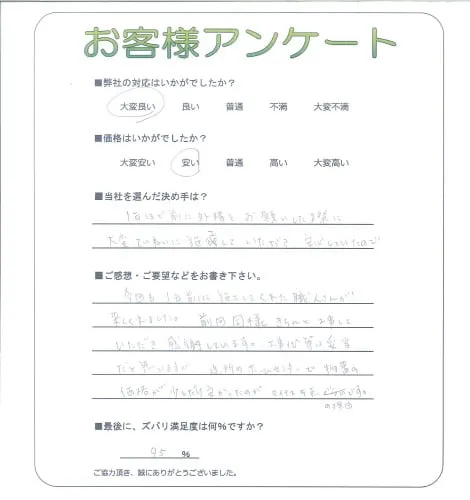 お客様アンケート
■弊社の対応はいかがでしたか？
大変良い 良い 普通 不満 大変不満
■価格はいかがでしたか？
大変安い 安い 普通 高い 大変高い
■当社を選んだ決め手は？
1年ほど前に外構をお願いした際に
大変ていねいに施工していただき 安心していたので
■ご感想・ご要望などをお書き下さい。
今回も1年前に施工してくれた職人さんが
来てくれました。前回同様きちんと工事して
いただき感謝しています。工事代等は妥当
だと思いますが 近所のホームセンターで物置の
価格が少しだけ安かったのが
です。
■最後に、ズバリ満足度は何％ですか？
95 ％
ご協力頂き、誠にありがとうございました。